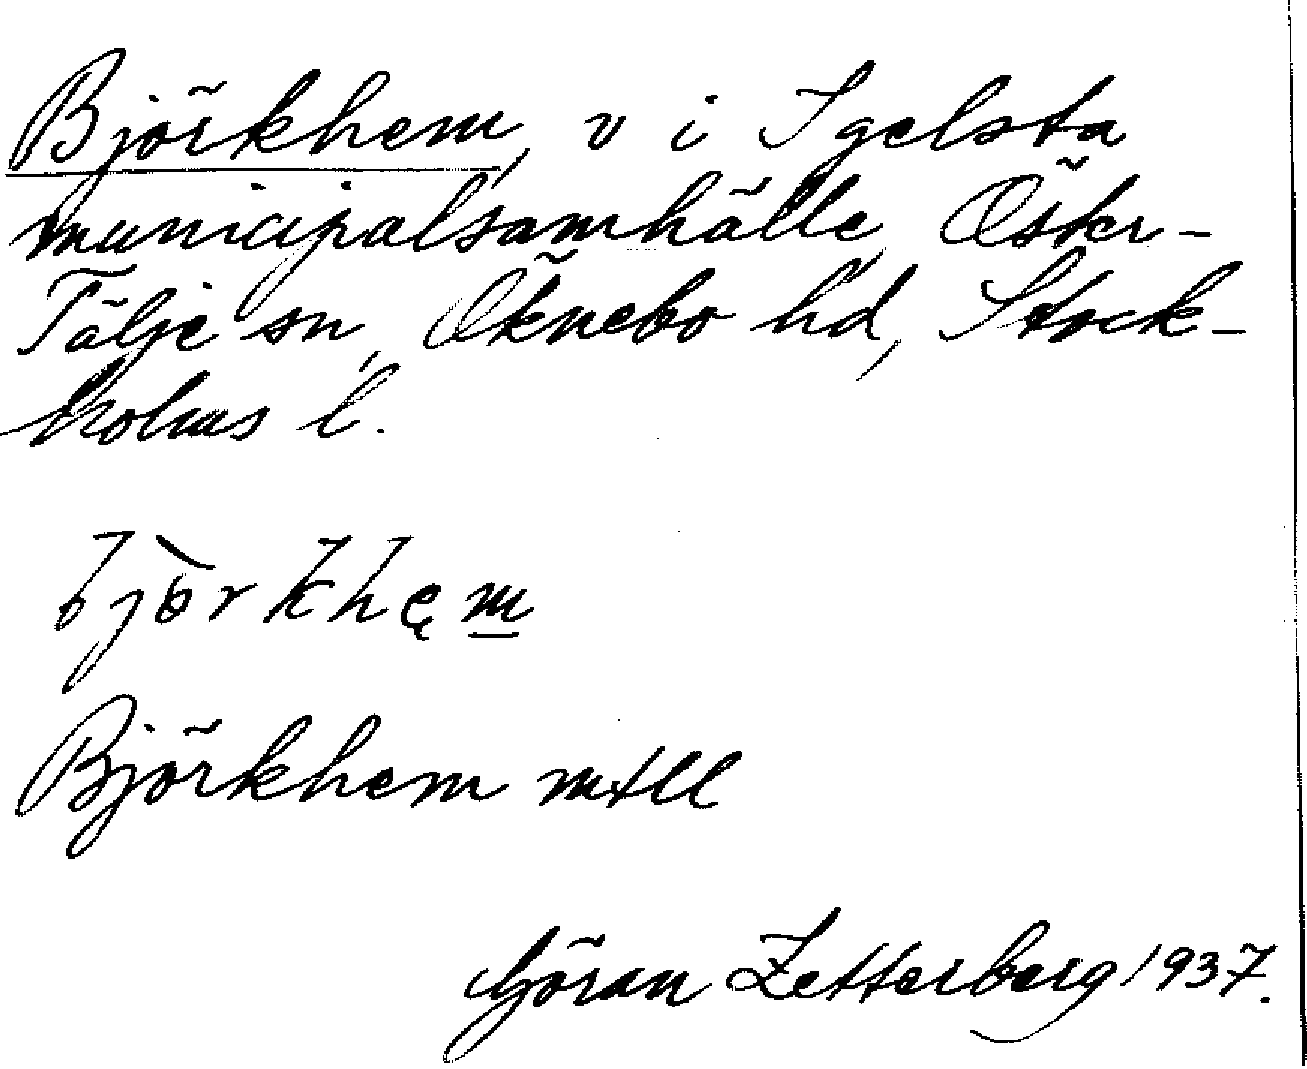 Björkhem, v i Igelsta
municipalsamhälle, Öster-
Tälje sn, Öknebo hd, Stock-
holms l.
bjò̄rkhęm
Björkhem mtll
Göran Zetterberg 1937.